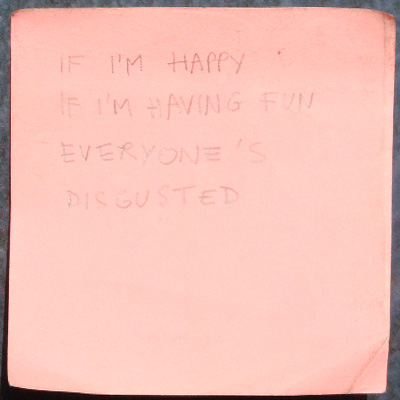 IF I'M HAPPY
IF I'M HAVING FUN
EVERYONE'S
DISGUSTED